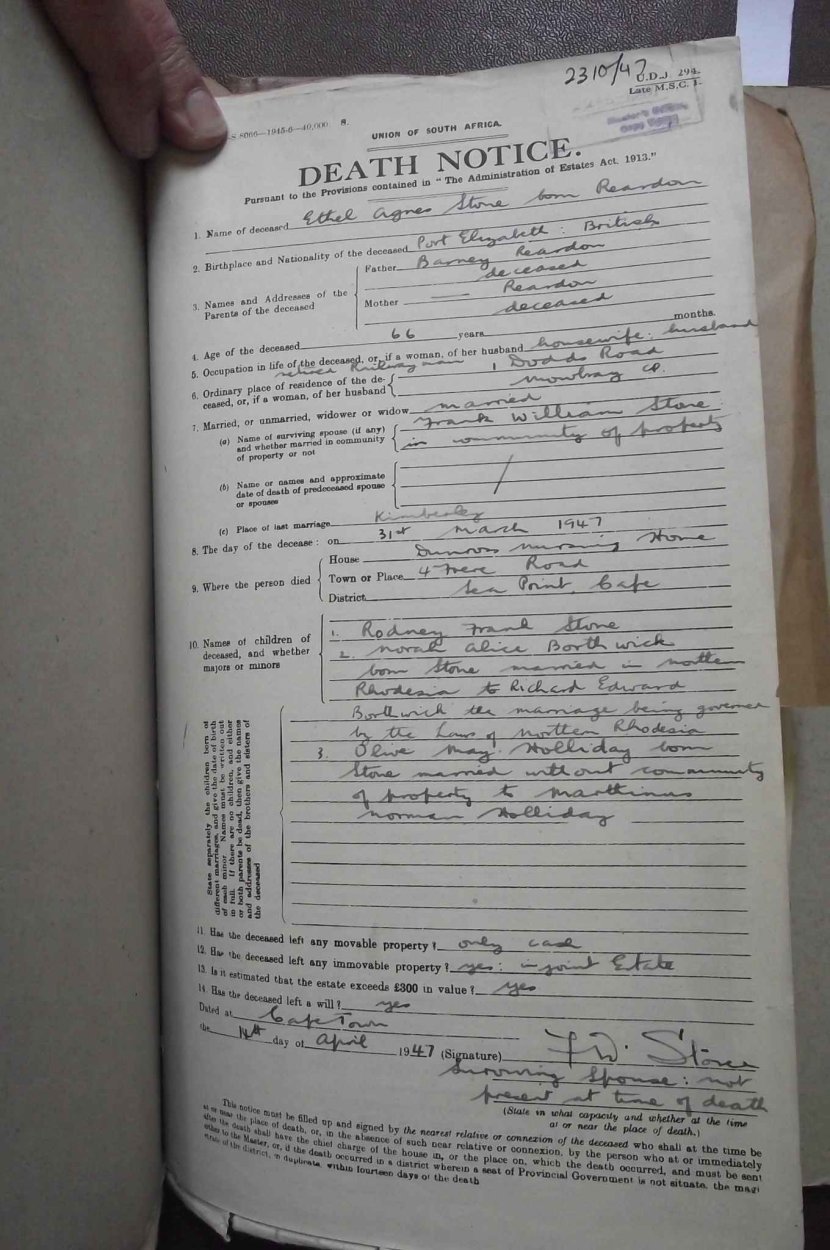 2310/47
U.D.J. 294.
Late M.S.C. 1.
S. 8066—1945-6—40,000 S.
UNION OF SOUTH AFRICA.
DEATH NOTICE.
Pursuant to the Provisions contained in "The Administration of Estates Act, 1913."
1. Name of deceased Ethel Agnes Stone born Reardon
2. Birthplace and Nationality of the deceased Port Elizabeth : British
3. Names and Addresses of the Parents of the deceased
Father Barney Reardon
deceased
Mother — Reardon
deceased
4. Age of the deceased 66 years months.
5. Occupation in life of the deceased, or, if a woman, of her husband housewife: husband
retired Railwayman
6. Ordinary place of residence of the de-
ceased, or, if a woman, of her husband
1 Dodds Road
Mowbray CP.
7. Married, or unmarried, widower or widow married
(a) Name of surviving spouse (if any)
and whether married in community
of property or not
Frank William Stone:
in community of property
(b) Name or names and approximate
date of death of predeceased spouse
or spouses
/
(c) Place of last marriage Kimberley
8. The day of the decease : on 31st March 1947
9. Where the person died
House Dunross Nursing Home
Town or Place 4 Frere Road
District Sea Point, Cape
10. Names of children of
deceased, and whether
majors or minors
1. Rodney Frank Stone
2. Norah Alice Borthwick
born Stone married in Northern
Rhodesia to Richard Edward
Borthwick the marriage being governed
by the Laws of Northern Rhodesia
3. Olive May Holliday born
Stone married without community
of property to Marthinus
Norman Holliday
State separately the children born of
different marriages, and give the date of birth
of each minor. Names must be written out
in full. If there are no children, and either
or both parents be dead, then give the names
and addresses of the brothers and sisters of
the deceased
11. Has the deceased left any movable property ? only cash
12. Has the deceased left any immovable property ? yes: in joint Estate
13. Is it estimated that the estate exceeds £300 in value ? yes
14. Has the deceased left a will ? yes
Dated at Cape Town
the 14th day of April 1947 (Signature) F W. Stone
Surviving Spouse: not
present at time of death
(State in what capacity and whether at the time
at or near the place of death.)
This notice must be filled up and signed by the nearest relative or connexion of the deceased who shall at the time be
at or near the place of death, or, in the absence of such near relative or connexion, by the person who at or immediately
after the death shall have the chief charge of the house in, or the place on, which the death occurred, and must be sent
either to the Master, or, if the death occurred in a district wherein a seat of Provincial Government is not situate, the magi
strate of the district, in duplicate, within fourteen days of the death